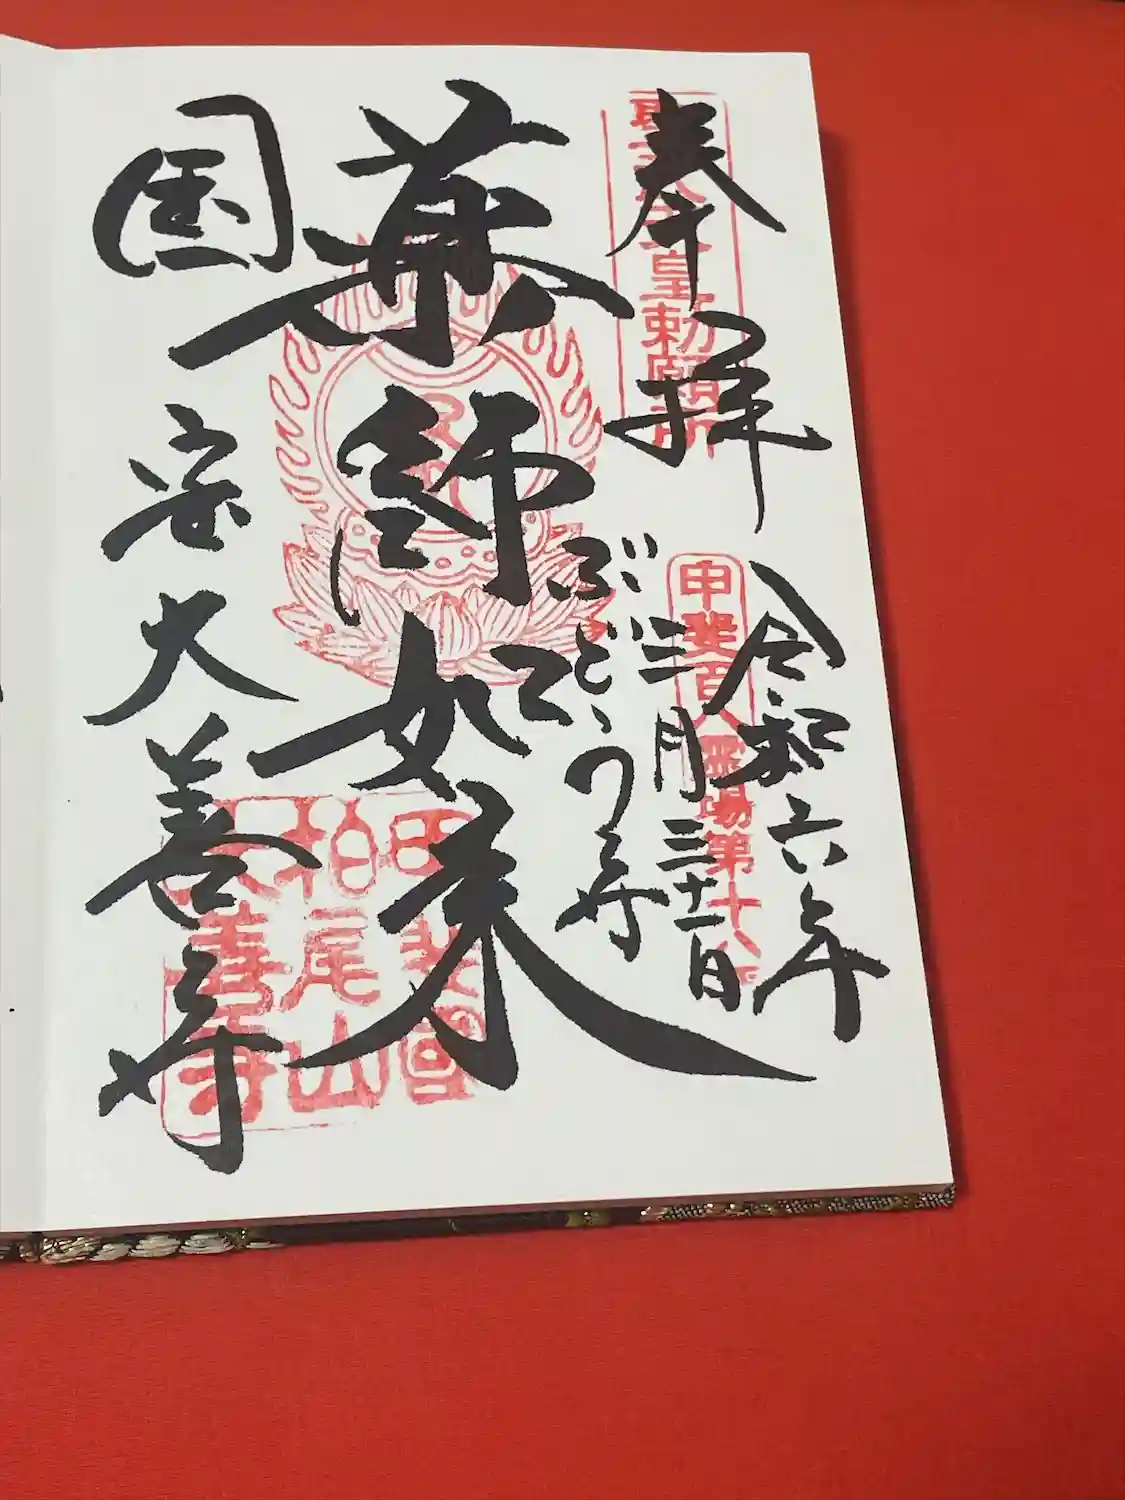 奉拝
令和六年
三月三十一日
ぶどう寺
薬師如来
国宝大善寺
皇勅願所
甲斐百八霊場第十八
柏尾山
大善寺